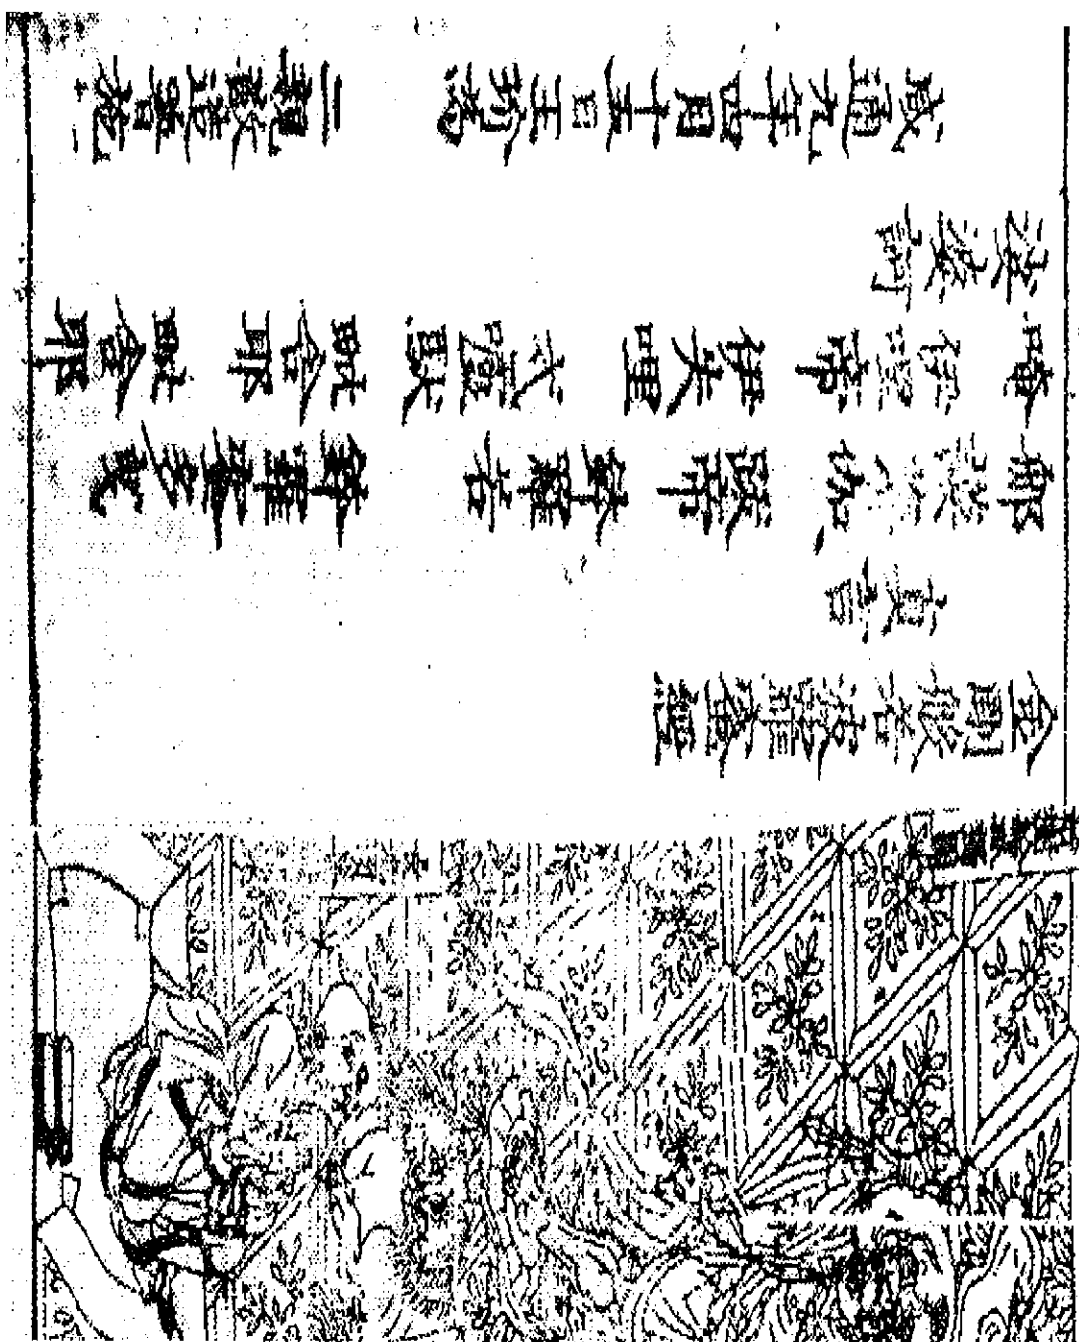 金剛般若波羅蜜經
真言
那 伽跋帝 鉢羅若 鉢羅蜜多曳
唵 伊 帝 伊失里 盧馱 毗舍耶 毗舍耶
莎婆訶
咸通九年四月十五日王玠為 二親敬造普施